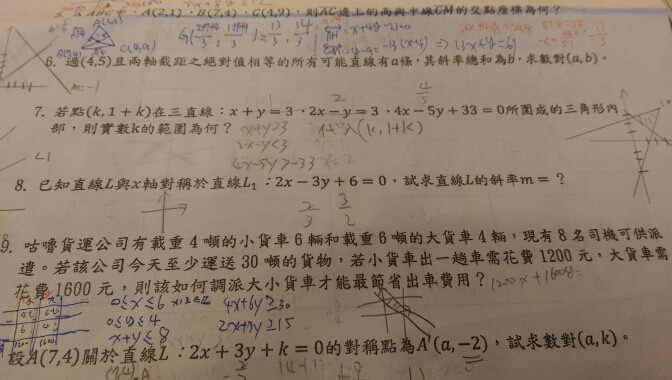 △ABC中，A(2,1)、B(7,4)、C(4,9)，則AC邊上的高與中線CM的交點座標為何？
6. 過(4,5)且兩軸截距之絕對值相等的所有可能直線有a條，其斜率總和為b，求數對(a,b)。
7. 若點(k,1+k)在三直線：x+y=3、2x−y=3、4x−5y+33=0所圍成的三角形內
部，則實數k的範圍為何？ x+y>3 (k,1+k)
2x-y<3
4x-5y>-33
8. 已知直線L與x軸對稱於直線L₁：2x−3y+6=0，試求直線L的斜率m=？
2/3 3/2
9. 咕嚕貨運公司有載重4噸的小貨車6輛和載重6噸的大貨車4輛，現有8名司機可供派
遣。若該公司今天至少運送30噸的貨物，若小貨車出一趟車需花費1200元，大貨車需
花費1600元，則該如何調派大小貨車才能最節省出車費用？ 1200x+1600y=
0≤x≤6 4x+6y≥30
0≤y≤4 2x+3y≥15
x+y≤8
設A(7,4)關於直線L：2x+3y+k=0的對稱點為A'(a,−2)，試求數對(a,k)。